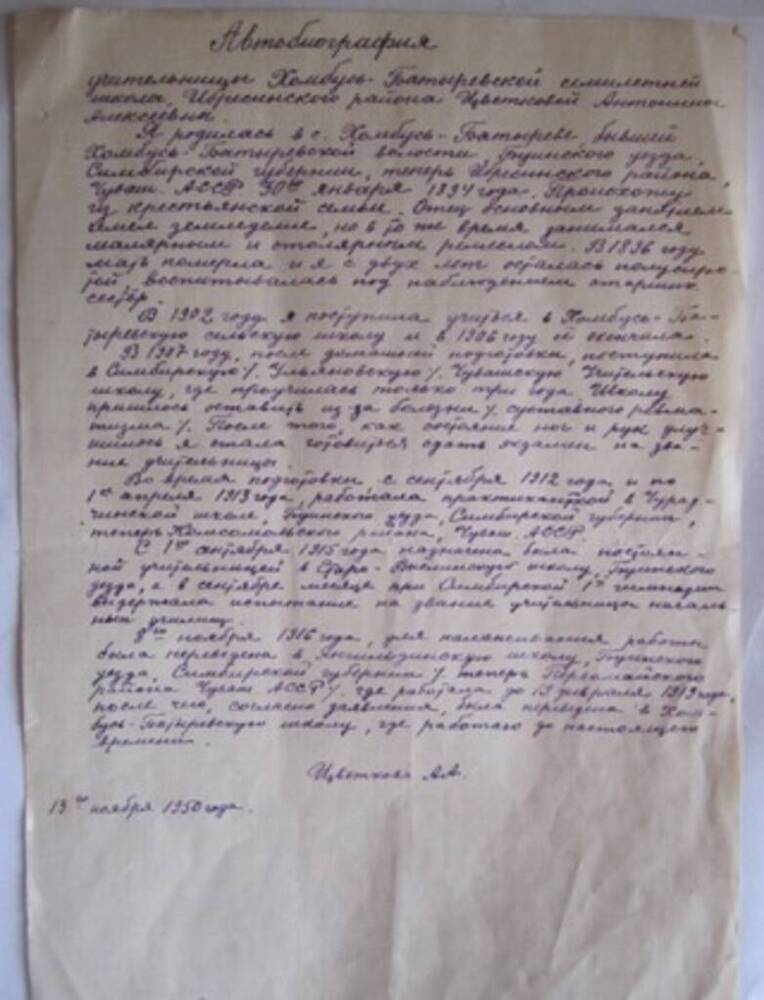 Автобиография
учительницы Хомбусь-Батыревской семилетней
школы, Ибресинского района Цветковой Антонины
Алексеевны.
Я родилась в с. Хомбусь-Батыреве бывшей
Хомбусь-Батыревской волости, Буинского уезда,
Симбирской губернии, теперь Ибресинского района,
Чуваш. АССР 30го января 1894 года. Происхожу
из крестьянской семьи. Отец основным занятием
имел земледелие, но в то же время занимался
малярным и столярным ремеслом. В 1896 году
мать померла и я с двух лет осталась полусиро-
той воспитывалась под наблюдением старших
сестёр.
В 1902 году я поступила учиться в Хомбусь-Ба-
тыревскую сельскую школу и в 1906 году её окончила.
В 1907 году, после домашней подготовки, поступила
в Симбирскую /. Ульяновскую /. Чувашскую Учительскую
школу, где проучилась только три года. Школу
пришлось оставить из за болезни /. суставного ревма-
тизма /. После того, как состояние ног и рук улуч-
шилось я стала готовиться сдать экзамен на зва-
ние учительницы.
Во время подготовки с сентября 1912 года и по
1ое апреля 1913 года, работала практиканткой в Чурад-
чинской школе, Буинского уезда, Симбирской губернии,
теперь Комсомольского района, Чуваш. АССР.
С 1го октября 1915 года назначена была постоян-
ной учительницей в Старо- школу, Буинского
уезда, а в сентябре месяце при Симбирской 1ой гимназии
выдержала испытание на звание учительницы началь-
ных училищ.
8го ноября 1916 года, для налаживания работы
была переведена в школу, Буинского
уезда, Симбирской губернии /. теперь Первомайского
района Чуваш АССР /. где работала до 13 февраля 1919 года,
после чего, согласно заявления, была переведена в Хом-
бусь-Батыревскую школу, где работаю до настоящего
времени.
Цветкова А.А.
13го ноября 1950 года.